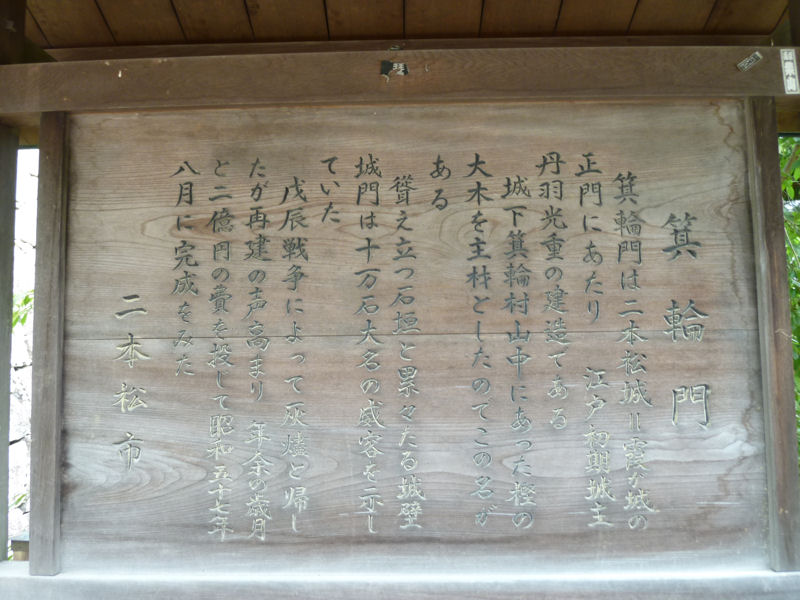 箕輪門
箕輪門は二本松城＝霞が城の
正門にあたり　江戸初期城主
丹羽光重の建造である
城下箕輪村山中にあった樫の
大木を主材としたのでこの名が
ある
聳え立つ石垣と累々たる城壁
城門は十万石大名の威容を示し
ていた
戊辰戦争によって灰燼と帰し
たが再建の声高まり　年余の歳月
と二億円の費を投して昭和五十七年
八月に完成をみた
二本松市